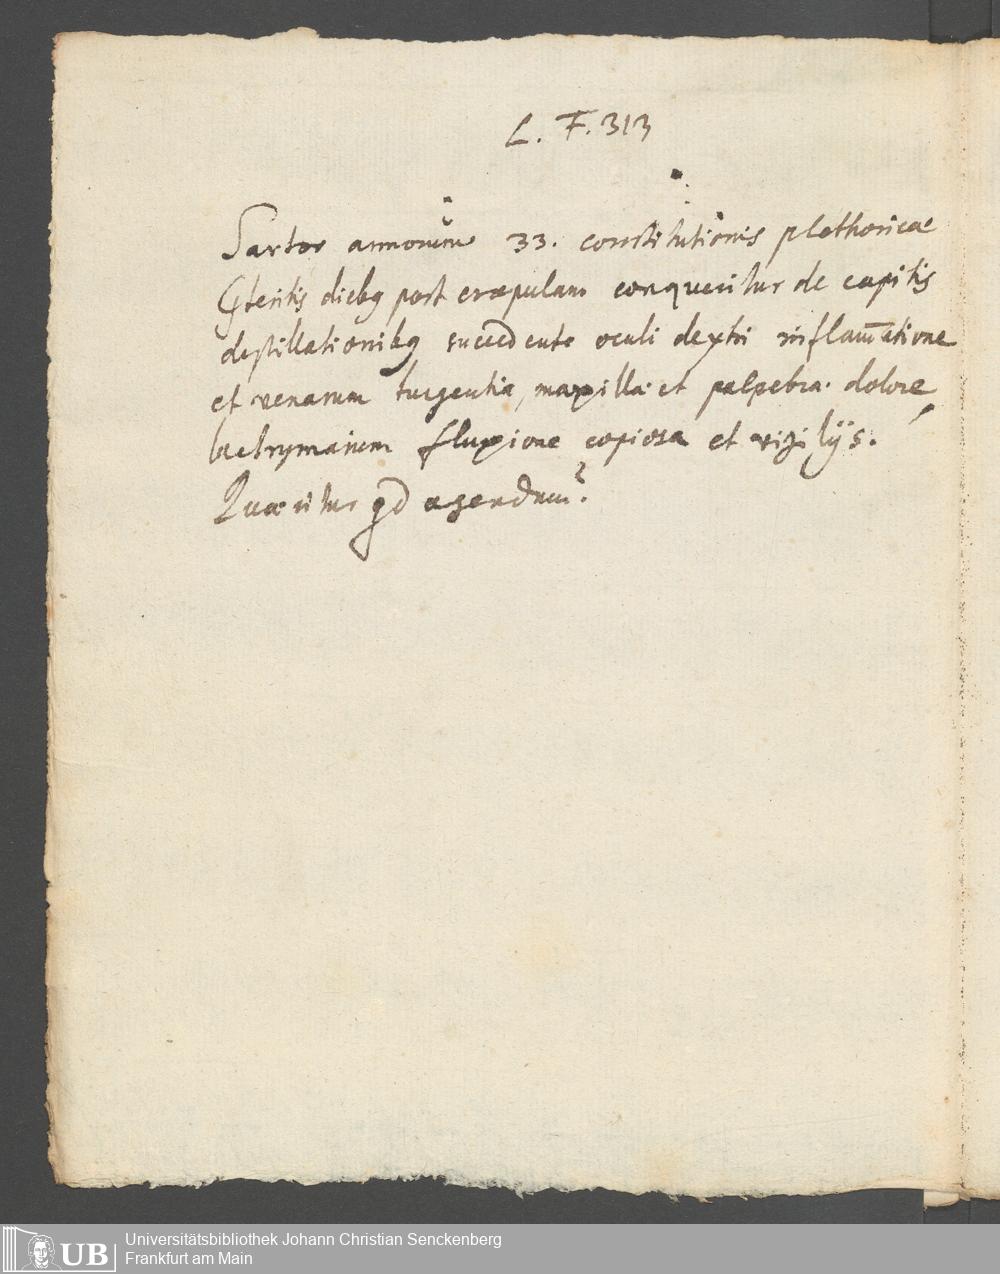 L. F. 313
Sartor annorum 33. constitutionis plethoricae
diebq post crapulam conqueritur de capitis
destillationibq succedente oculi dextri inflam̄atione
et venarum turgentia, maxillæ et palpebræ dolore
lachrymarum fluxione copiosa et vigilijs.
Quæritur qd agendum?
UB
Universitätsbibliothek Johann Christian Senckenberg
Frankfurt am Main